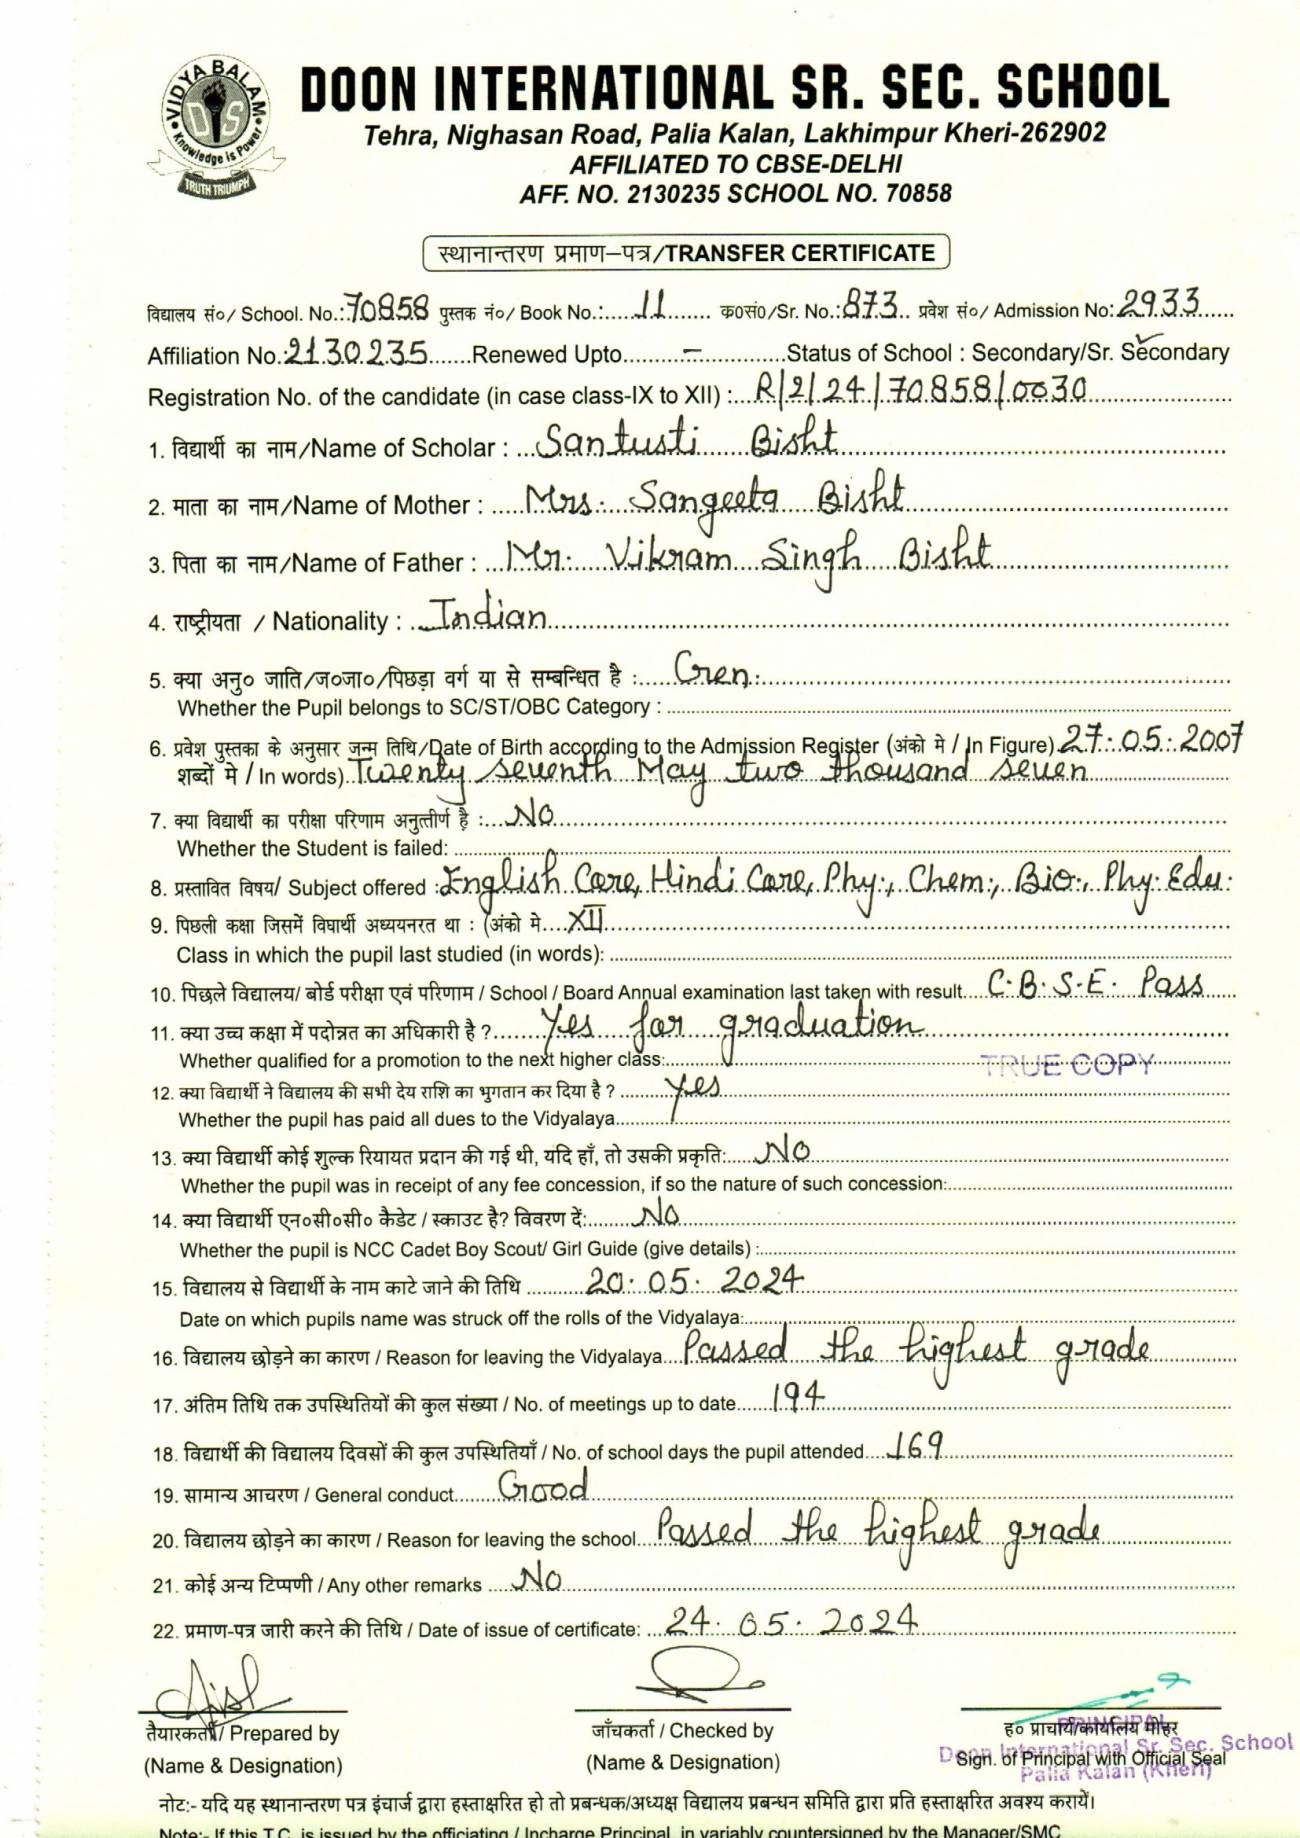 VIDYA BALAM
DIS
Knowledge is Power
TRUTH TRIUMPH
DOON INTERNATIONAL SR. SEC. SCHOOL
Tehra, Nighasan Road, Palia Kalan, Lakhimpur Kheri-262902
AFFILIATED TO CBSE-DELHI
AFF. NO. 2130235 SCHOOL NO. 70858
स्थानान्तरण प्रमाण–पत्र/TRANSFER CERTIFICATE
विद्यालय सं०/ School. No.:70858 पुस्तक नं०/ Book No.:.....11....... क०सं०/Sr. No.:873.. प्रवेश सं०/ Admission No:2933......
Affiliation No.:2130235.......Renewed Upto.........–............Status of School : Secondary/Sr. Secondary
Registration No. of the candidate (in case class-IX to XII) :...R/2/24/70858/0030
1. विद्यार्थी का नाम/Name of Scholar : ...Santusti Bisht
2. माता का नाम/Name of Mother : .....Mrs. Sangeeta Bisht
3. पिता का नाम/Name of Father : ...Mr. Vikram Singh Bisht
4. राष्ट्रीयता / Nationality : ..Indian
5. क्या अनु० जाति/ज०जा०/पिछड़ा वर्ग या से सम्बन्धित है :.....Gen.
Whether the Pupil belongs to SC/ST/OBC Category :
6. प्रवेश पुस्तका के अनुसार जन्म तिथि/Date of Birth according to the Admission Register (अंको मे / In Figure).27.05.2007
शब्दों मे / In words)..Twenty seventh May two thousand seven
7. क्या विद्यार्थी का परीक्षा परिणाम अनुत्तीर्ण है :...No
Whether the Student is failed:
8. प्रस्तावित विषय/ Subject offered :English Core, Hindi Core, Phy:, Chem:, Bio:, Phy. Edu.
9. पिछली कक्षा जिसमें विद्यार्थी अध्ययनरत था : (अंको मे....XII
Class in which the pupil last studied (in words):
10. पिछले विद्यालय/ बोर्ड परीक्षा एवं परिणाम / School / Board Annual examination last taken with result....C.B.S.E. Pass
11. क्या उच्च कक्षा में पदोन्नत का अधिकारी है ?.......Yes for graduation
Whether qualified for a promotion to the next higher class:
TRUE COPY
12. क्या विद्यार्थी ने विद्यालय की सभी देय राशि का भुगतान कर दिया है ? .......yes
Whether the pupil has paid all dues to the Vidyalaya
13. क्या विद्यार्थी कोई शुल्क रियायत प्रदान की गई थी, यदि हाँ, तो उसकी प्रकृति:.....No
Whether the pupil was in receipt of any fee concession, if so the nature of such concession:
14. क्या विद्यार्थी एन०सी०सी० कैडेट / स्काउट है? विवरण दें:.......No
Whether the pupil is NCC Cadet Boy Scout/ Girl Guide (give details) :
15. विद्यालय से विद्यार्थी के नाम काटे जाने की तिथि .........20.05.2024
Date on which pupils name was struck off the rolls of the Vidyalaya:
16. विद्यालय छोड़ने का कारण / Reason for leaving the Vidyalaya...Passed the highest grade
17. अंतिम तिथि तक उपस्थितियों की कुल संख्या / No. of meetings up to date......194
18. विद्यार्थी की विद्यालय दिवसों की कुल उपस्थितियाँ / No. of school days the pupil attended....169
19. सामान्य आचरण / General conduct.......Good
20. विद्यालय छोड़ने का कारण / Reason for leaving the school...Passed the highest grade
21. कोई अन्य टिप्पणी / Any other remarks ....No
22. प्रमाण-पत्र जारी करने की तिथि / Date of issue of certificate: ...24.05.2024
तैयारकर्ता / Prepared by
(Name & Designation)
जाँचकर्ता / Checked by
(Name & Designation)
ह० प्राचार्य/कार्यालय मोहर
Sign. of Principal with Official Seal
PRINCIPAL
Doon International Sr. Sec. School
Palia Kalan (Kheri)
नोट:- यदि यह स्थानान्तरण पत्र इंचार्ज द्वारा हस्ताक्षरित हो तो प्रबन्धक/अध्यक्ष विद्यालय प्रबन्धन समिति द्वारा प्रति हस्ताक्षरित अवश्य करायें।
Note:- If this T.C. is issued by the officiating / Incharge Principal, in variably countersigned by the Manager/SMC